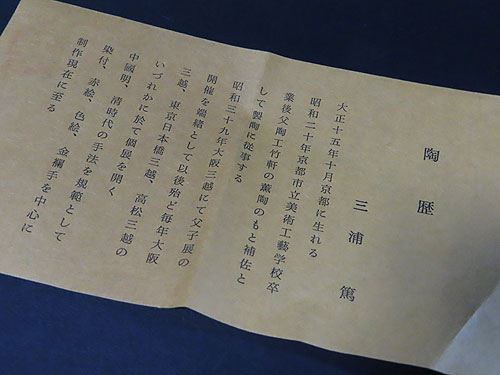 陶歴
三浦篤
大正十五年十月京都に生れる
昭和二十年京都市立美術工藝学校卒
業後父陶工竹軒の薫陶のもと補佐と
して製陶に従事する
昭和三十九年大阪三越にて父子展の
開催を端緒として以後殆ど毎年大阪
三越、東京日本橋三越、高松三越の
いづれかに於て個展を開く
中國明、清時代の手法を規範として
染付、赤絵、色絵、金襴手を中心に
制作現在に至る